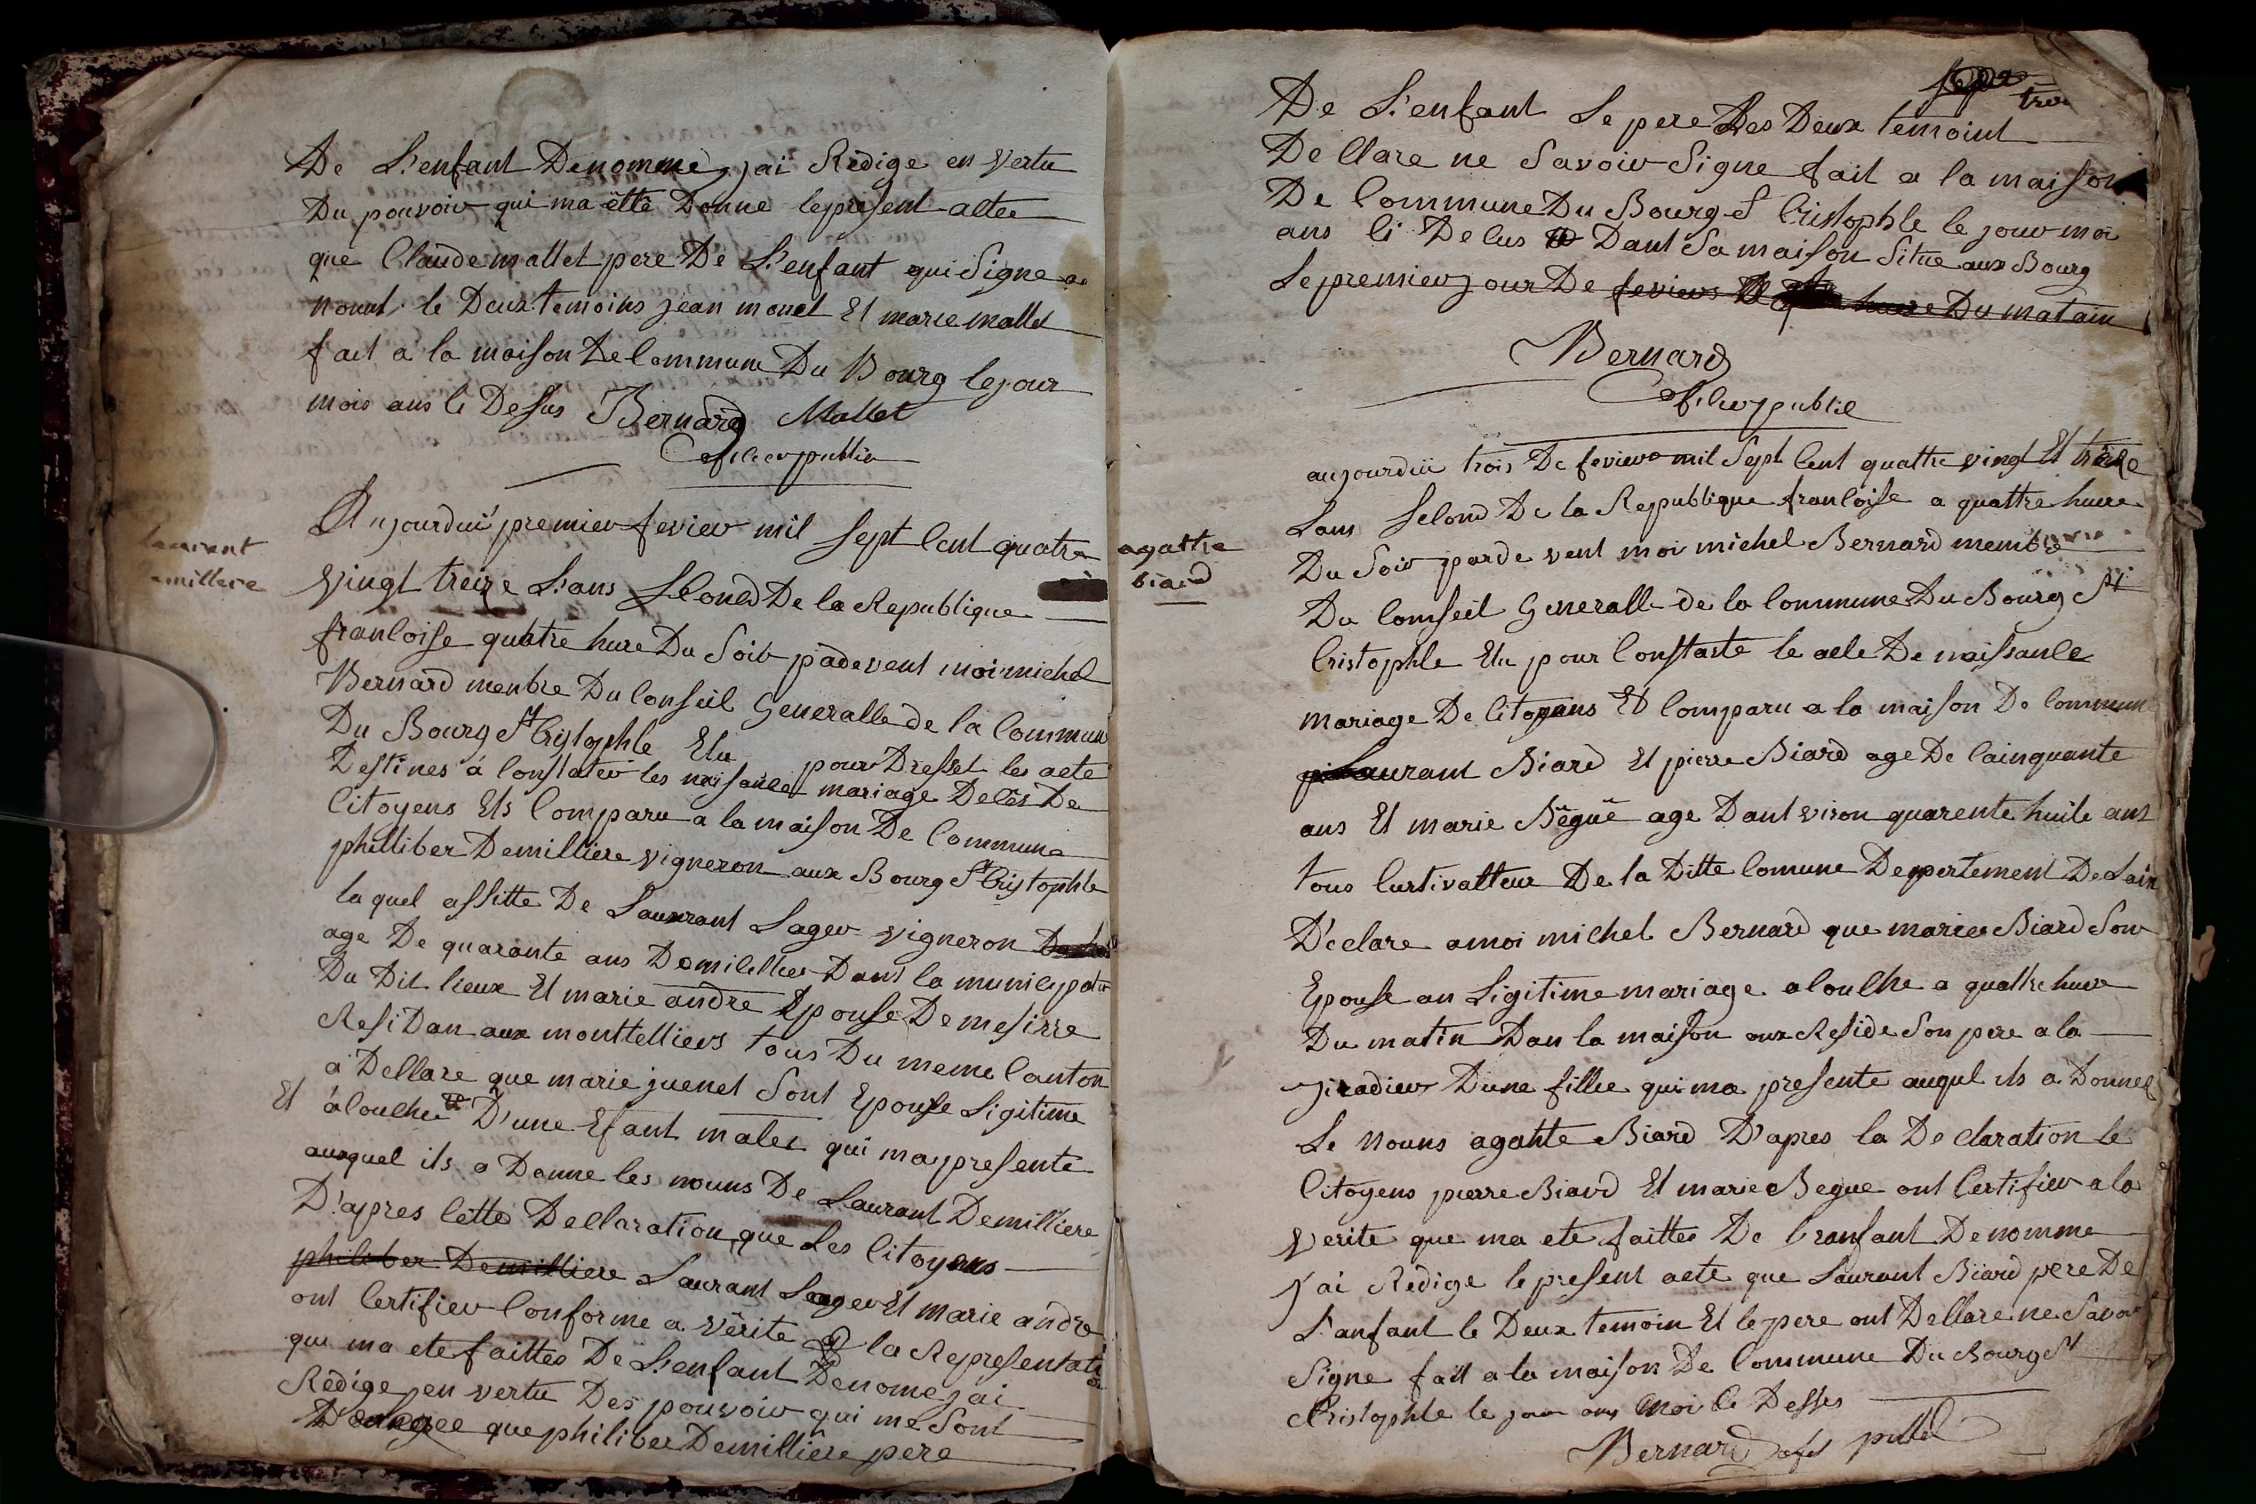 De L'enfant Denommé, jai Rédige en vertu
Du pouvoir qui ma étté Donne le present actee
que Claude mallet pere De L'enfant qui Signe
nonut le Deux temoins jean monet Et marie mallet
fait a la maison De Commune Du Bourg le jour
mois ans li Desus Bernard Mallet
oficier publie
Laurant
emilliere
Aujourdui premier fevier mil sept Cent quatre
vingt treize L'ans Second De la Republique
francoise quatre hure Du Soir padevent moi michel
Bernard menbre Du Conseil Generalle de la Commun
Du Bourg St Cristophle Elu pour Dresset les acte
Destines á Constater les naisance mariage Deces De
Citoyens Ets Comparu a la maison De Commune
philliber Demilliere vigneron aux Bourg St Cristophle
laquel assitte De Laurant Lager vigneron
age De quarante ans Domicillier Dans la municypalit
Du Dit lieux Et marie andre Epouse De mesirre
ResiDan aux monttelliers tous Du meme Canton
a Dellare que marie juenet Sont Epouse Ligitime
Et alouchee D'une Efant malee qui ma presente
auxquel ils a Donne les nouns De Laurant Demilliere
D'apres Cette Declaration que Les Citoyens
philiber Demilliere Laurant Lager Et marie andre
ont Certifier Conforme a vérite la Representati
que ma ete faittes De L'enfant Denome jai
Rédige en vertu Des pouvoir qui me Sont
que philiber Demilliére pere
trois
De L'enfant Le pere Les Deux temoint
Dellare ne Savoir Signe fait a la maison
De Commune Du Bourg St Cristophle le jour moi
ans li Delus Dant Sa maison Situe aux Bourg
Le premier jour De feviers hure Du matain
Bernard
oficier publie
agathe
biard
aujourdüi trois De fevier mil Sept Cent quattre vingt Et treize
Lans Second De la Republique francoise a quattre hure
Du Soir pardevent moi michel Bernard membre
Du Comseil Generalle de la Commune Du Bourg St
Cristophle Elu pour Constaste le acte De naissance
mariage De Citoyens Et Comparu a la maison De Commun
Laurant Biard Et pierre Biard age De Cainquante
ans Et marie Bëguë age Dantviron quarente huite ans
tous Curtivatteur De la Ditte Comune Depertement De Lain
Declare a moi michel Bernard que marie Biard Son
Epouse an Ligitime mariage alouche a quattre hure
Du matin Dan la maison oux Reside Son pere a la
jiradier Dune fillee qui ma presente auquel ils a Donnee
Le nouns agathe Biard D'apres la Declaration Le
Citoyens pierre Biard Et marie Begue ont Certifier a la
verite que ma ete faittes De l'ranfant Denomme
J'ai Redige le present acte que Laurant Biard pere De
L'anfant le Deux temoin Et le pere ont Dellare ne Savoir
Signe fait a la maison De Commune Du Bourg St
Christophle le jour ans moi Ci Desses
Bernard